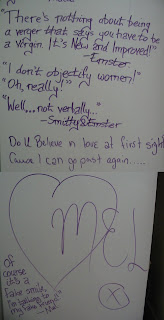 "There's nothing about being
a verger that says you have to be
a virgin. It's New and Improved!"
-Ernster
"I don't objectify women!"
"Oh, really?"
"Well...not verbally..."
-Smitty & Ernster
Do U Believe n love at first sight
Cauz I can go past again.....
MEL
Of
course
it's a
fake smile,
I'm talking to
my
Mel
X